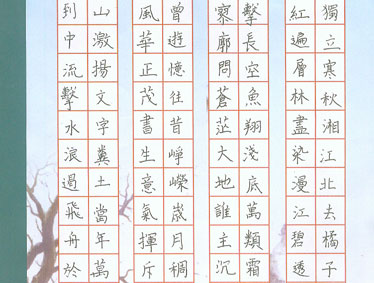 獨立寒秋湘江北去橘子
紅遍層林盡染漫江碧透
擊長空魚翔淺底萬類霜
寥廓問蒼茫大地誰主沉
曾遊憶往昔崢嶸歲月稠
風華正茂書生意氣揮斥
山激揚文字糞土當年萬
到中流擊水浪遏飛舟於